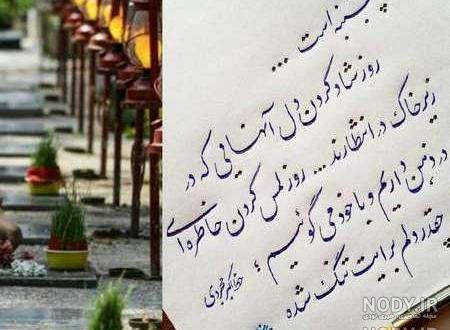 شنبه است ...
روز شاد کردن دل آنهایی که در
زیر خاک در انتظارند ... روز لمس کردن خاطره ای
در ذهن داریم و با خود می گوئیم ؛
چقدر دلم برایت تنگ شده
NODY.IR